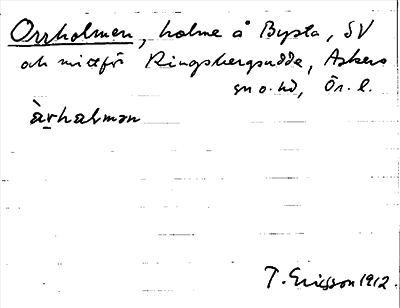 Orrholmen, holme å Bysta, SV
och mittför Ringsbergsudde, Askers
sn o. hd, Ör. l.
àrhalmən
T. Ericsson 1912.